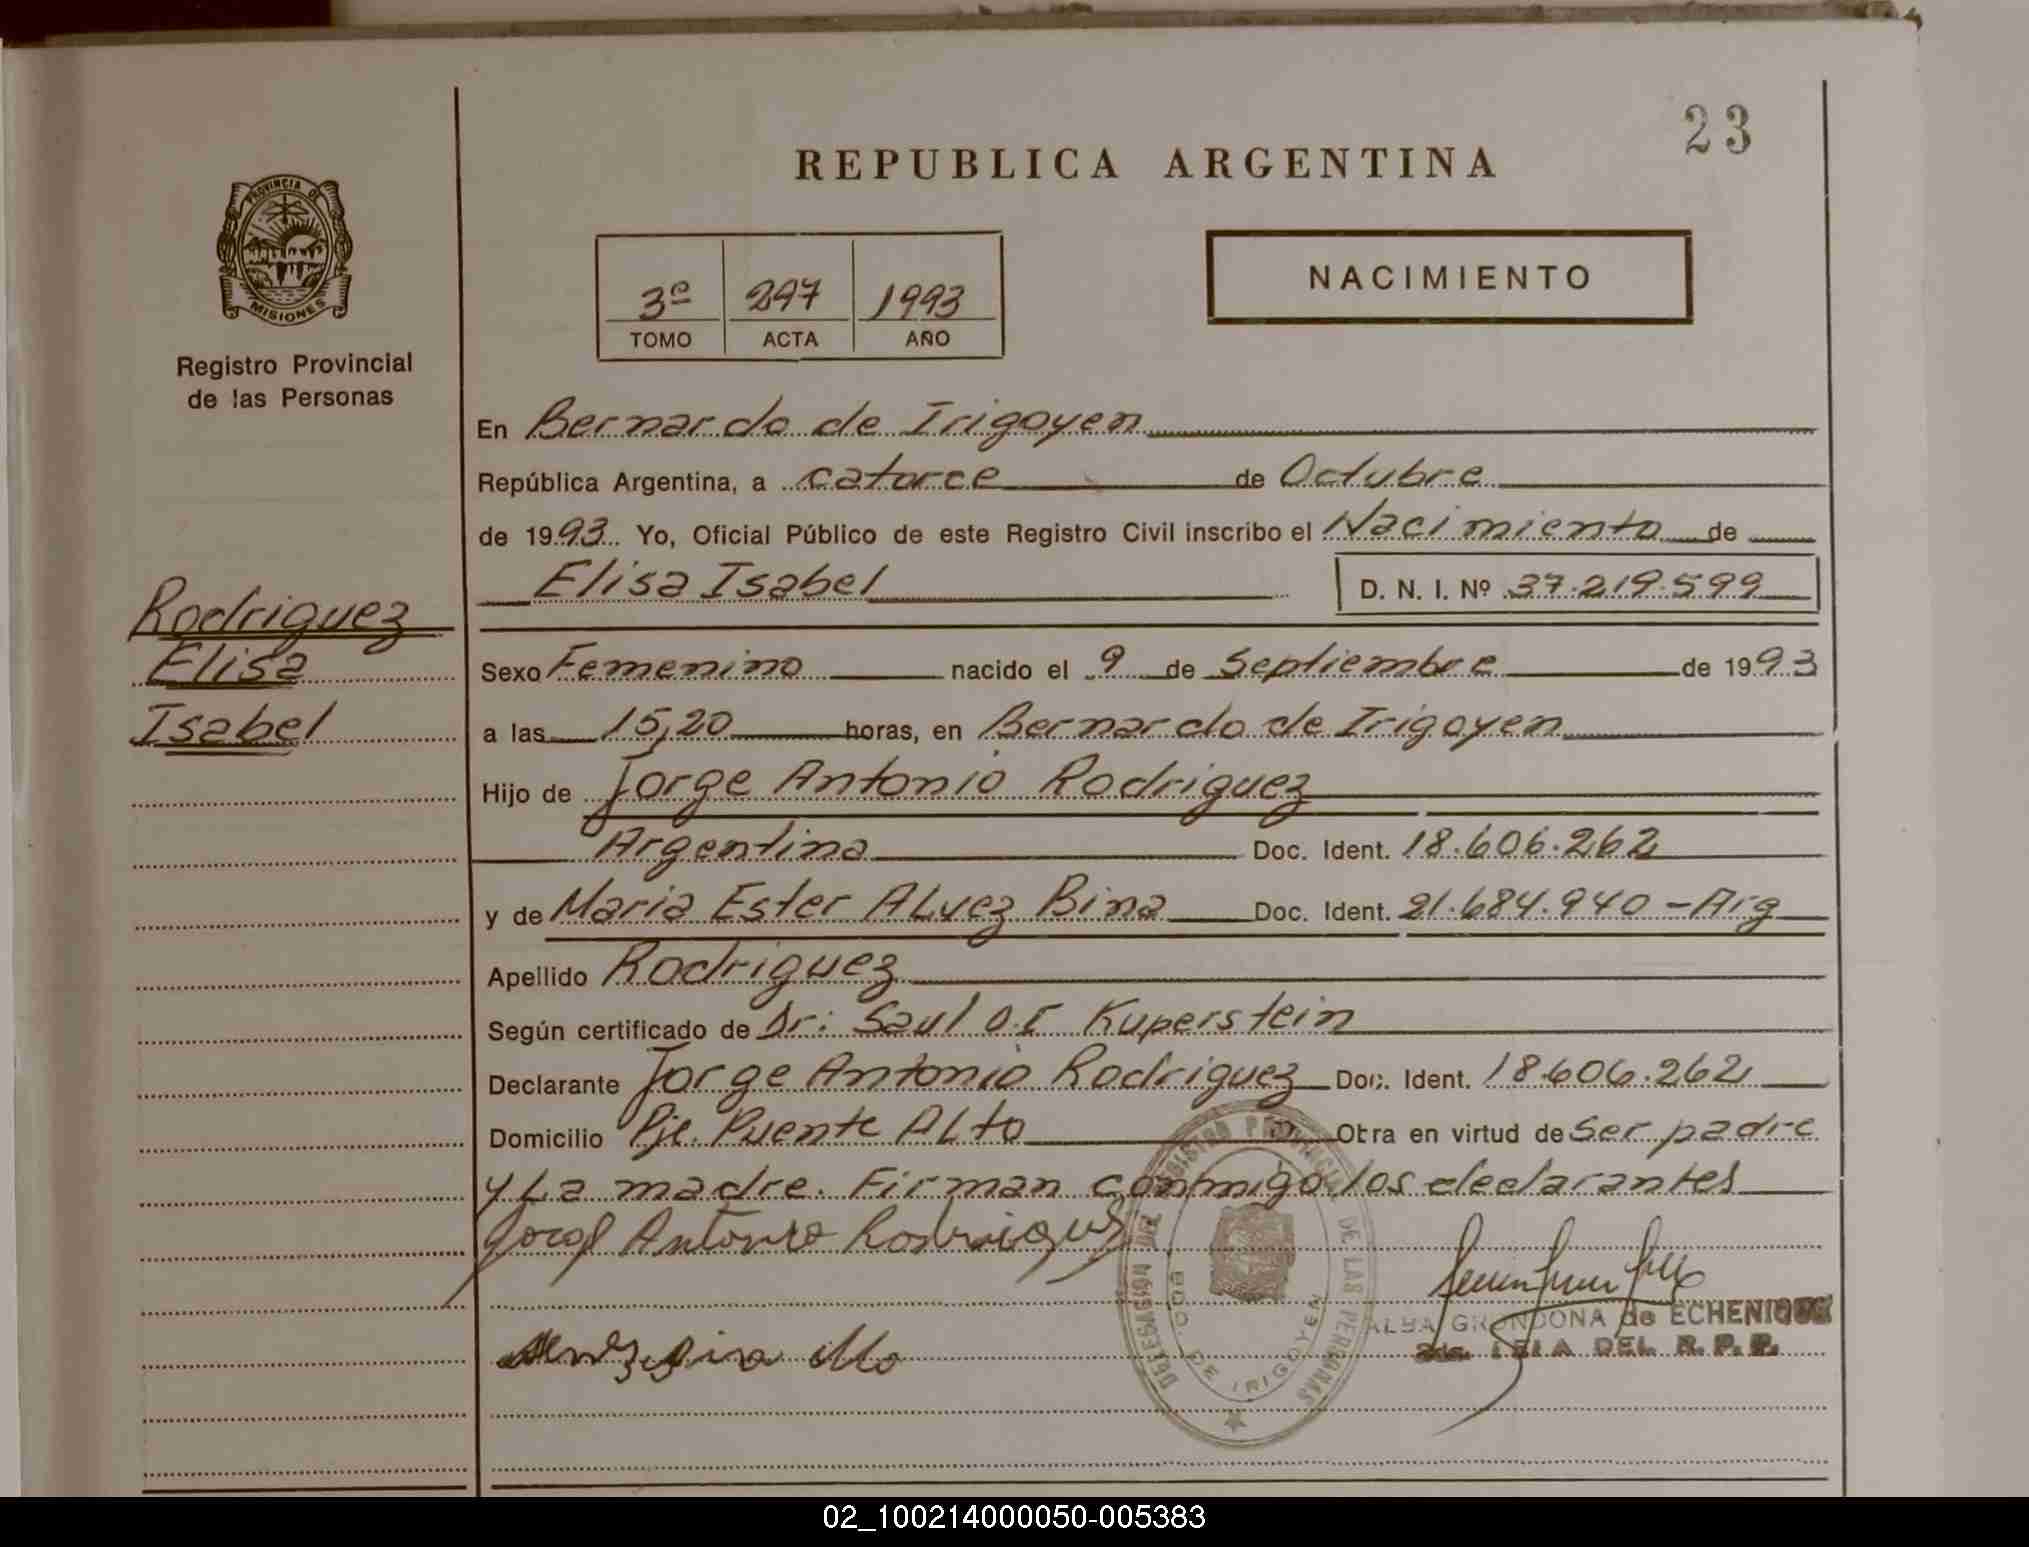 23
REPUBLICA ARGENTINA
PROVINCIA DE
MISIONES
Registro Provincial
de las Personas
3º 297 1993
TOMO ACTA AÑO
NACIMIENTO
En Bernardo de Irigoyen
República Argentina, a catorce de Octubre
de 1993. Yo, Oficial Público de este Registro Civil inscribo el Nacimiento de
Elisa Isabel D. N. I. Nº 37.219.599
Rodriguez
Elisa
Isabel
Sexo Femenino nacido el 9 de Septiembre de 1993
a las 15,20 horas, en Bernardo de Irigoyen
Hijo de Jorge Antonio Rodriguez
Argentina Doc. Ident. 18.606.262
y de Maria Ester ALvez Bina Doc. Ident. 21.684.940 - Arg
Apellido Rodriguez
Según certificado de Dr: Saul O.I Kuperstein
Declarante Jorge Antonio Rodriguez Doc. Ident. 18.606.262
Domicilio Pje. Puente ALto Obra en virtud de Ser padre
y La madre. Firman conmigo los declarantes
Antonio Rodriguez
ALBA GRONDONA de ECHENIQUE
DEL R. P. P.
DELEGACION DEL REGISTRO PROVINCIAL DE LAS PERSONAS
BDO. DE IRIGOYEN
02_100214000050-005383